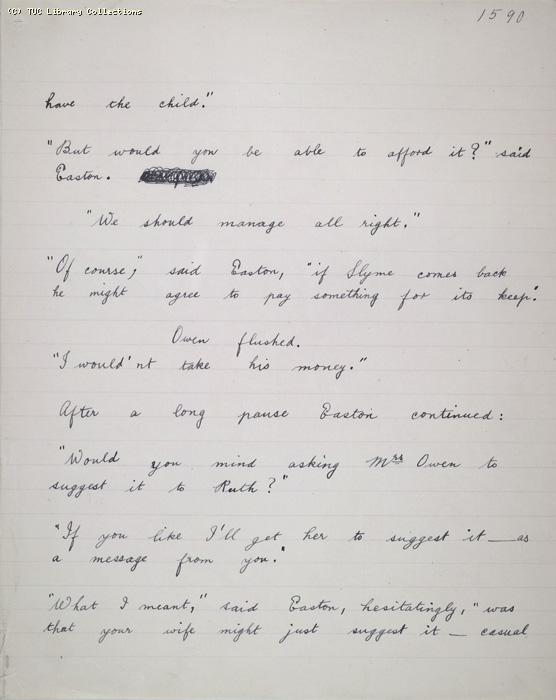 (C) TUC Library Collections
1590
have the child."
"But would you be able to afford it?" said
Easton.
"We should manage all right."
"Of course," said Easton, "if Slyme comes back
he might agree to pay something for its keep."
Owen flushed.
"I would'nt take his money."
After a long pause Easton continued:
"Would you mind asking Mrs Owen to
suggest it to Ruth?"
"If you like I'll get her to suggest it — as
a message from you."
"What I meant," said Easton, hesitatingly, "was
that your wife might just suggest it — casual